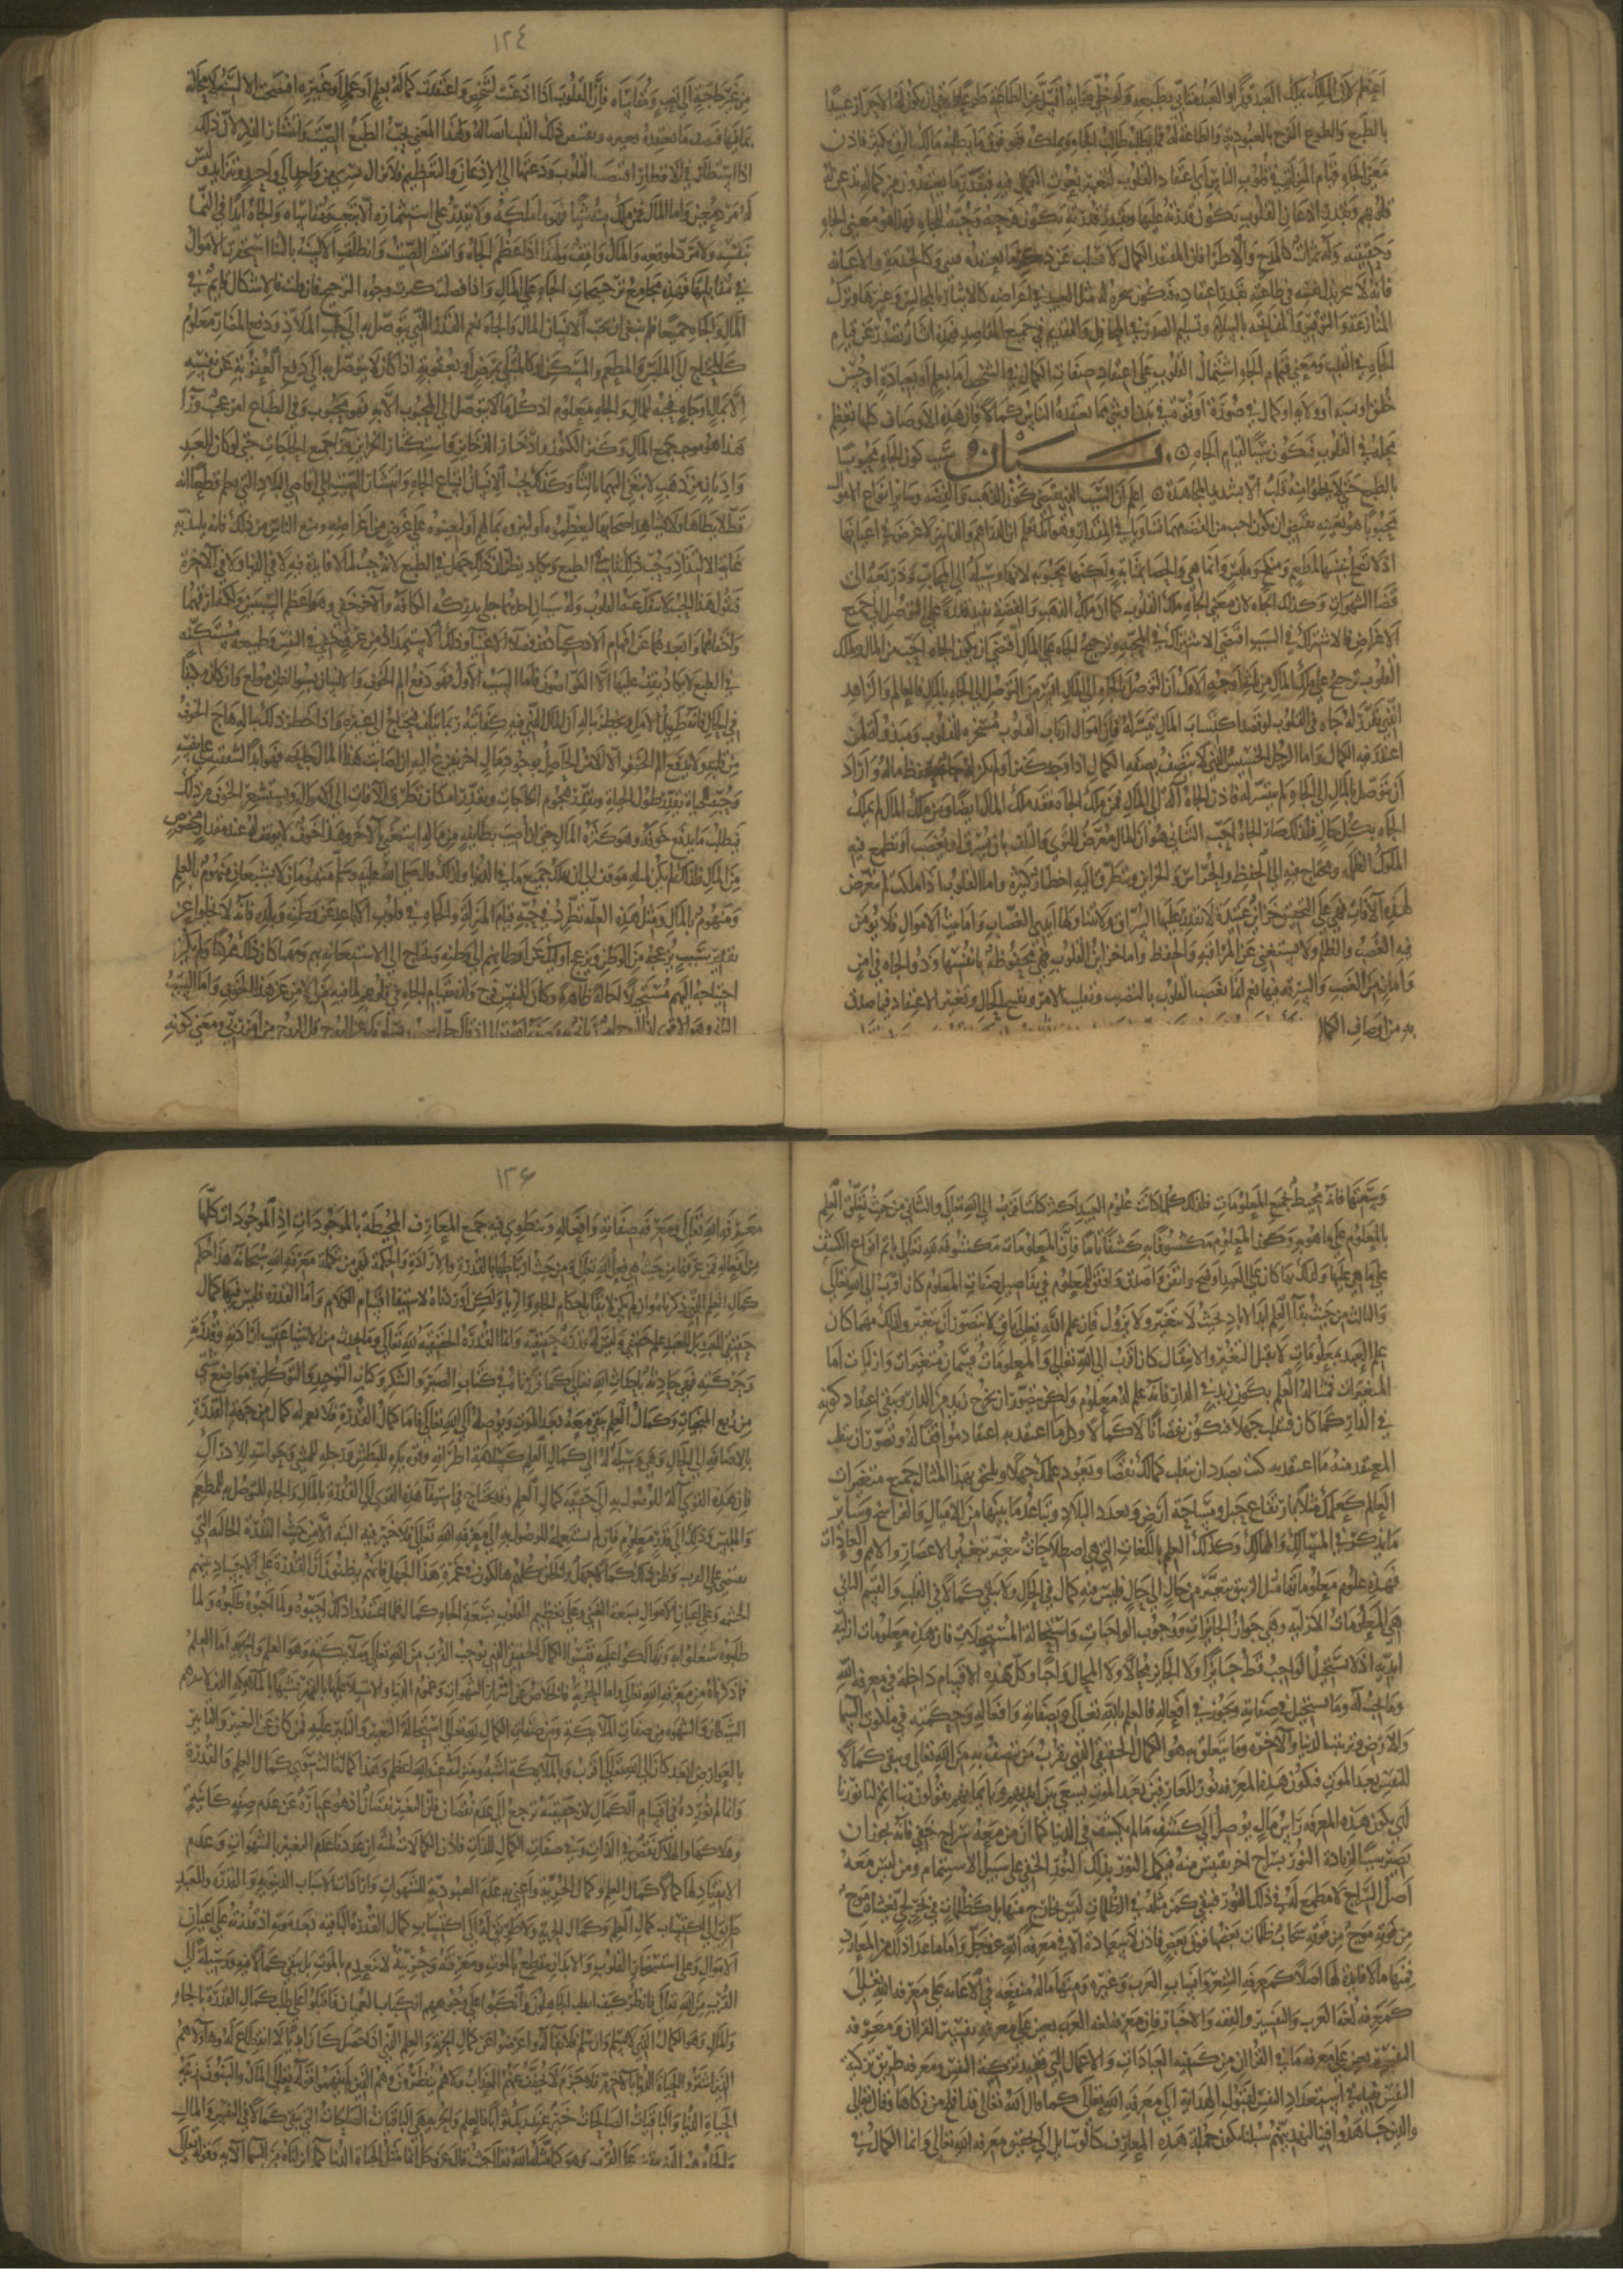 اعظم لان المالك يملك العبد قهرا والعبد متأبٍّ بطبعه ولو خلي ورأيه انسل عن الطاعة
بالطبع والطوع الفرح بالعبودية والطاعة له فما يطلبه طالب الجاه فوق ما يطلبه مالك الرق بكثير فاذن
معنى الجاه قيام المنزلة في قلوب الناس أي اعتقاد القلوب لنعت من نعوت الكمال فيه فبقدر ما يعتقدون من كماله تذعن له
قلوبهم وبقدر اذعان القلوب تكون قدرته على القلوب وبقدر قدرته يكون فرحه وحبه للجاه فهذا هو معنى الجاه
وحقيقته وله ثمرات كالمدح والاطراء فان المعتقد للكمال لا يسكت عن ذكر ما يعتقده فيثني وكالخدمة والاعانة
فانه لا يبخل ببذل نفسه في طاعته بقدر اعتقاده فيكون سخرة له مثل العبد في اغراضه وكالايثار
المنازعة والتوقير والمفاتحة بالسلام وتسليم الصدر في المحافل والتقديم في جميع المقاصد فهذه اثار تصدر عن قيام
الجاه في القلب ومعنى قيام الجاه اشتمال القلوب على اعتقاد صفات الكمال في الشخص اما بعلم او عبادة او حسن
خلق او نسب او ولاية او جمال في صورة او قوة في بدن او شي مما يعتقده الناس كمالا فان هذه الاوصاف كلها تعظم
محله في القلوب فيكون سببا لقيام الجاه بيان سبب كون الجاه محبوبا
بالطبع حتى لا يخلو عنه قلب الا بشديد المجاهدة اعلم ان السبب الذي يقتضي كون الذهب والفضة وسائر انواع الاموال
محبوبا هو بعينه يقتضي ان يكون احب من الفضة مهما تساويا في المقدار وهو انك تعلم ان الدراهم والدنانير لا غرض في اعيانها
اذ لا تصلح لمطعم ومنكح وملبس وانما هي والحصا بمثابة ولكنها محبوبة لانها وسيلة الى المحاب وذريعة الى
قضا الشهوات وكذلك الجاه لان معنى الجاه ملك القلوب كما ان ملك الذهب والفضة يفيد قدرة على التوصل الى جميع
الاغراض فالاشتراك في السبب اقتضى الاشتراك في المحبة وترجيح الجاه على المال اقتضى ان يكون الجاه احب من المال ولملك
القلوب ترجيح على ملك المال من ثلثة اوجه الاول ان التوصل بالجاه الى المال ايسر من التوصل الى الجاه بالمال فالعالم والزاهد
الذي تقرر له جاه في القلوب لو قصد اكتساب المال تيسر له فان اموال ارباب القلوب مسخرة للقلوب ومبذولة لمن
اعتقد فيه الكمال واما الرجل الخسيس الذي لا يتصف بصفة الكمال اذا وجد كنزا ولم يكن له جاه يحفظ ماله واراد
ان يتوصل بالمال الى الجاه لم يتيسر له فاذن الجاه آلة الى المال فمن ملك الجاه فقد ملك المال ايضا ومن ملك المال لم يملك
الجاه بكل حال فلذلك صار الجاه احب الثاني هو ان المال معرض للتوى والتلف بان يسرق او يغصب او تطمع فيه
الملوك الظلمة ويحتاج فيه الى الحفظ والحراس والخزائن ويتطرق اليه اخطار كثيرة واما القلوب اذا ملكت لم تتعرض
لهذه الآفات فهي على التحقيق خزائن عتيدة لا يقدر عليها السراق ولا تتناولها ايدي الغصاب واثبت الاموال فلا يؤمن
فيه الغصب والظلم ولا يستغني عن المراقبة والحفظ واما خزائن القلوب فهي محفوظة بانفسها وذو الجاه في امن
وامان من الغصب والسرقة فيها نعم انما تغصب القلوب بالتصريف وتقبيح الحال وتغيير الاعتقاد فيما صدق
به من اوصاف الكمال
١٢٤
من غير حاجة الى تعب ومقاساة فان القلوب اذا اذعنت لشخص واعتقدت كماله بعلم او عمل او غيره افصحت الالسنة لا محالة
بما فيها فيصف ما يعتقده لغيره ويقتنص ذلك القلب ايضا له ولهذا المعنى يحب الطبع الصيت وانتشار الذكر لان ذلك
اذا استطار في الاقطار اقتنص القلوب ودعاها الى الاذعان والتعظيم فلا يزال يسري من واحد الى واحد ويتزايد وليس
له مرد معين واما المال فمن ملك منه شيئا فهو مالكه ولا يقدر على استنمائه الا بتعب ومقاساة والجاه ابدا في النما
بنفسه ولا مرد لموقعه والمال واقف ولهذا اذا عظم الجاه وانتشر الصيت وانطلقت الالسنة بالثنا استحقرت الاموال
في مقابلتها فهذه مجامع ترجيحات الجاه على المال واذا فصلت كثرت وجوه الترجيح فان قلت فالاشكال قائم في
المال والجاه جميعا فلم ينبغي ان يحب الانسان المال والجاه نعم القدر الذي يتوصل به الى جلب الملاذ ودفع المضار معلوم
كالمحتاج الى الملبس والمطعم والمسكن او كالمبتلى بمرض او بعقوبة اذا كان لا يتوصل به الى دفع العقوبة عن نفسه
الا بمال او جاه فحبه للمال والجاه معلوم اذ كل ما لا يتوصل الى المحبوب الا به فهو محبوب وفي الطباع امر عجيب ورا
هذا هو حب جمع المال وكنز الكنوز وادخار الذخاير واستكثار الخزاين ورا جميع الحاجات حتى لو كان للعبد
واديان من ذهب لابتغى اليهما ثالثا وكذلك يحب الانسان اتساع الجاه وانتشار الصيت الى اقاصي البلاد التي يعلم قطعا انه
قط لا يطأها ولا يشاهد اصحابها ليعظموه او ليبروه بمالهم او ليعينوه على غرض من اغراضه ومع الياس من ذلك فانه يلتذ به
غاية الالتذاذ وحب ذلك ثابت في الطبع ويكاد يظن ان ذلك جهل في الطبع لانه حب لما لا فايدة فيه لا في الدنيا ولا في الآخرة
فنقول هذا الحب لا تنفك عنه القلوب وله سببان احدهما جلي يدركه الكافة والآخر خفي وهو اعظم السببين ولكنه ادقهما
واخفاهما وابعدهما عن افهام الاذكيا فضلا عن الاغبيا وذلك لاستمداده من عرق خفي في النفس وطبيعة مستكنة
في الطبع لا يكاد يقف عليها الا الغواصون فاما السبب الاول فهو دفع الم الخوف والانسان بسوء الظن مولع وان كان مكفيا
في الحال فانه طويل الامل ويخطر بباله ان المال الذي فيه كفايته ربما يتلف فيحتاج الى غيره واذا خطر ذلك بباله هاج الخوف
من قلبه ولا يدفع الم الخوف الا الامن الحاصل بوجود مال اخر يفزع اليه ان اصابت هذا المال جائحة فهو ابدا لشفقته على نفسه
وحبه للحياة يقدر طول الحياة ويقدر هجوم الحاجات ويقدر امكان تطرق الآفات الى الاموال ويستشعر الخوف من ذلك
فيطلب ما يدفع خوفه وهو كثرة المال حتى ان اصيب بطائفة من ماله استغنى بالآخر وهذا خوف لا يوقف له عند مقدار مخصوص
من المال فلذلك لم يكن لمثله موقف الى ان يملك جميع ما في الدنيا ولذلك قال صلى الله عليه وسلم منهومان لا يشبعان منهوم بالعلم
ومنهوم بالمال ومثل هذه العلة تطرد في حبه قيام المنزلة والجاه في قلوب الاباعد عن وطنه وبلده فانه لا يخلوا عن
تقدير سبب يزعجه عن الوطن او يزعج اولئك عن اوطانهم الى وطنه ويحتاج الى الاستعانة بهم ومهما كان ذلك ممكنا ولم يكن
احتياجه اليهم مستحيلا احالة ظاهرة وكان للنفس فرح ولذة بقيام الجاه في قلوبهم لما فيه من الامن من هذا الخوف واما السبب
الثاني وهو الاقوى ان الروح امر رباني به وصفه الله تعالى اذ قال ويسألونك عن الروح قل الروح من امر ربي ومعنى كونه
وسعتها فانه يحيط بجميع المعلومات فلذلك كلما كانت علوم العبد اكثر كان اقرب الى الله تعالى والثاني من حيث تعلق العلم
بالمعلوم على ما هو به وكون المعلوم مكشوفا به كشفا تاما فان المعلومات مكشوفة لله تعالى باتم انواع الكشف
على ما هي عليها فلذلك مهما كان علم العبد اوضح وايقن واصدق واوفق للمعلوم في تفاصيل صفات المعلوم كان اقرب الى الله تعالى
والثالث من حيث بقا العلم ابد الآباد بحيث لا يتغير ولا يزول فان علم الله تعالى باق لا يتصور ان يتغير فكذلك مهما كان
علم العبد بمعلومات لا يقبل التغير والانتقال كان اقرب الى الله تعالى والمعلومات قسمان متغيرات وازليات اما
المتغيرات فمثاله العلم بكون زيد في الدار فانه علم له معلوم ولكن يتصور ان يخرج زيد من الدار ويبقى اعتقاد كونه
في الدار كما كان فينقلب جهلا فيكون نقصانا لا كمالا وكلما اعتقدته اعتقادا موافقا له وتصور ان ينقلب
المعتقد فيه عما اعتقدته كنت بصدد ان ينقلب كمالك نقصا ويعود علمك جهلا ويلتحق بهذا المثال جميع متغيرات
العالم كعلمك مثلا بارتفاع جبل ومساحة ارض وبعدد البلاد وتباعد ما بينها من الاميال والفراسخ وسائر
ما يذكر في المسالك والممالك وكذلك العلم باللغات التي هي اصطلاحات تتغير بتغير الاعصار والامم والعادات
فهذه علوم معلوماتها مثل الزيبق تتغير من حال الى حال فليس فيه كمال في الحال ولا يبقى كمالا في القلب والقسم الثاني
هي المعلومات الازلية وهي جواز الجائزات ووجوب الواجبات واستحالة المستحيلات فان هذه معلومات ازلية
ابدية اذ لا يستحيل الواجب قط جائزا ولا الجائز محالا ولا المحال واجبا وكل هذه الاقسام داخلة في معرفة الله
وما يجب له وما يستحيل في صفاته ويجوز في افعاله فالعلم بالله تعالى وبصفاته وافعاله وحكمته في ملكوت السما
والارض وترتيب الدنيا والآخرة وما يتعلق به هو الكمال الحقيقي الذي يقرب من يتصف به من الله تعالى ويبقى كمالا
للنفس بعد الموت فتكون هذه المعرفة نورا للعارفين بعد الموت يسعى بين ايديهم وبايمانهم يقولون ربنا اتمم لنا نورنا
أي يكون هذه المعرفة راس مال يوصل الى كشف ما لم يكشف في الدنيا كما ان من معه سراج خفي فانه يجوز ان
يصير سببا لزيادة النور بسراج اخر يقتبس منه فيكمل النور بذلك النور الخفي على سبيل الاستتمام ومن ليس معه
اصل السراج فلا مطمع له في ذلك النور فيبقى كمن مثله في الظلمات ليس بخارج منها بل كظلمات في بحر لجي يغشاه موج
من فوقه موج من فوقه سحاب ظلمات بعضها فوق بعض فاذن لا سعادة الا في معرفة الله عز وجل واما ما عدا ذلك من المعارف
فمنها ما لا فائدة لها اصلا كمعرفة الشعر وانساب العرب وغيره ومنها ما له منفعة في الاعانة على معرفة الله تعالى
كمعرفة لغة العرب والتفسير والفقه والاخبار فان معرفة لغة العرب يعين على معرفة تفسير القرآن ومعرفة
التفسير يعين على معرفة ما في القرآن من كيفية العبادات والاعمال التي تفيد تزكية النفس ومعرفة طريق تزكية
النفس يفيد استعداد النفس لقبول الهداية الى معرفة الله تعالى كما قال الله تعالى قد افلح من زكاها وقال تعالى
والذين جاهدوا فينا لنهدينهم سبلنا فيكون جملة هذه المعارف كالوسايل الى تحقيق معرفة الله تعالى وانما الكمال في
١٢٦
معرفة الله تعالى ومعرفة صفاته وافعاله وينطوي فيه جميع المعارف المحيطة بالموجودات اذ الموجودات كلها
من افعاله فمن عرفها من حيث هي فعل الله تعالى ومن حيث ارتباطها بالقدرة والارادة والحكمة فهي من تكملة معرفة الله سبحانه هذا حكم
كمال العلم الذي ذكرناه وان لم يكن لائقا باحكام الجاه والريا ولكن اوردناه لاستيفا اقسام الكمال واما القدرة فليس فيها كمال
حقيقي للعبد بل للعبد علم حقيقي وليس له قدرة حقيقية وانما القدرة الحقيقية لله تعالى وما يحدث من الاشيا عقيب ارادة العبد وقدرته
وحركته فهي حادثة باحداث الله تعالى كما قررناه في كتاب الصبر والشكر وكتاب التوحيد والتوكل في مواضع شتى
من ربع المنجيات وكمال العلم يبقى معه بعد الموت ويوصله الى الله تعالى فاما كمال القدرة فلا نعم له كمال من جهة القدرة
بالاضافة الى الحال وهي وسيلة له الى كمال العلم كسلامة اطرافه وقوة يده للبطش ورجله للمشي وحواسه للادراك
فان هذه القوى آلة للوصول به الى حقيقة كمال العلم وقد يحتاج في استيفا هذه القوى الى القدرة بالمال والجاه للتوصل به للمطعم
والملبس وذلك الى قدر معلوم فان لم يستعمله للوصول به الى معرفة الله تعالى فلا خير فيه البتة الا من حيث اللذة الحالية التي
تنقضي على القرب ومن ظن ذلك كمالا فقد جهل فالخلق كلهم هالكون في غمرة هذا الجهل فانهم يظنون ان القدرة على الاجساد بقهر
الحشمة وعلى اعيان الاموال بسعة الغنى وعلى تعظيم القلوب بسعة الجاه كمال فلما اعتقدوا ذلك احبوه ولما احبوه طلبوه ولما
طلبوه شغلوا به وتهالكوا عليه فنسوا الكمال الحقيقي الذي يوجب القرب من الله تعالى ومن ملايكته وهو العلم والحرية اما العلم
فما ذكرناه من معرفة الله تعالى واما الحرية فالخلاص من اسر الشهوات وغموم الدنيا والاستيلا عليها بالقهر تشبها بالملايكة الذين لا تستفزهم
الشهوة من صفات الملايكة ومن صفات الكمال لله تعالى استحالة التغير والتأثر عليه فمن كان عن التغير والتأثر
بالعوارض ابعد كان الى الله تعالى اقرب وبالملايكة اشبه ومنزلته عند الله اعظم وهذا كمال ثالث سوى كمال العلم والقدرة
وانما لم نورده في اقسام الكمال لان حقيقته ترجع الى عدم ونقصان فان التغير نقصان اذ هو عبارة عن عدم صفة كائنة
وهلاكها والهلاك نقص في الذات وفي صفات الكمال للذات فاذن الكمالات ثلثة ان عددنا عدم التغير بالشهوات وعدم
الانقياد لها كمالا ككمال العلم وكمال الحرية واعني به عدم العبودية للشهوات وارادات الاسباب الدنيوية والقدرة للعبد
طريق الى اكتساب كمال العلم وكمال الحرية ولا طريق له الى اكتساب كمال القدرة الباقية بعد موته اذ قدرته على اعيان
الاموال وعلى استسخار القلوب والابدان ينقطع بالموت ومعرفته وحريته لا تنعدم بالموت بل يبقى كمالا فيه ووسيلة الى
القرب من الله تعالى فانظر كيف انقلب الجاهلون وانكبوا على وجوههم انكباب العميان فاقبلوا على طلب كمال القدرة بالجاه
والمال وهو الكمال الذي لا يسلم وان سلم فلا بقا له واعرضوا عن كمال الحرية والعلم الذي اذا حصل كان ابديا لا انقطاع له وهؤلاهم
الذين اشتروا الحياة الدنيا بالآخرة فلا جرم لا يخفف عنهم العذاب ولا هم ينظرون وهم الذين لم يفهموا قوله تعالى المال والبنون زينة
الحياة الدنيا والباقيات الصالحات خير عند ربك ثوابا فالعلم والحرية هي الباقيات الصالحات التي تبقى كمالا في النفس والمال
والجاه هو الذي ينقضي على القرب وهو كما مثله الله تعالى حيث قال عز وجل انما مثل الحياة الدنيا كما انزلناه من السما الآية وقوله تعالى